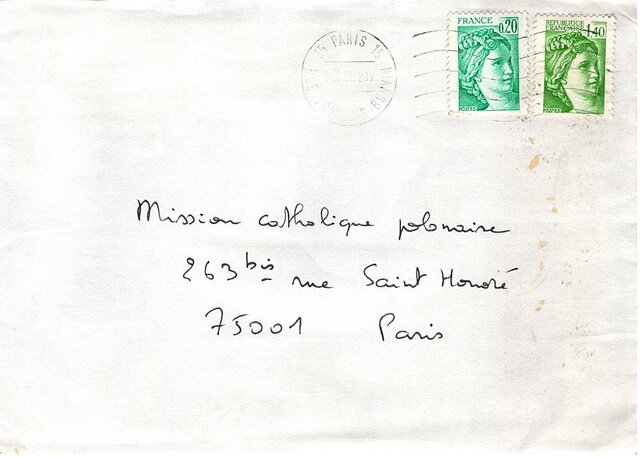 75 PARIS 15
FRANCE
0,20
POSTES
REPUBLIQUE
FRANÇAISE
1,40
POSTES
Mission catholique polonaise
263 bis rue Saint Honoré
75001 Paris